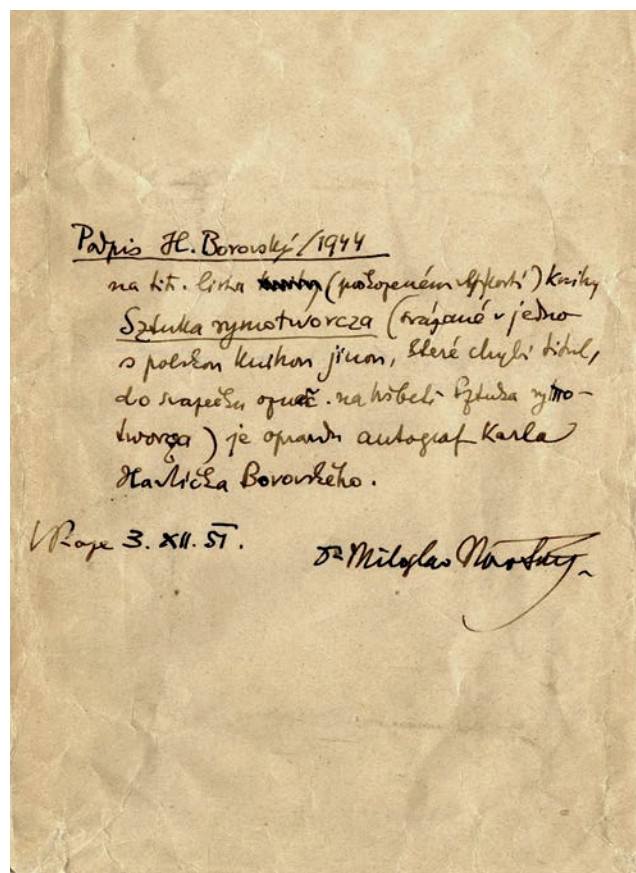 Podpis H. Borovský/1944
na tit. listu (poškozeném) knihy
Sztuka rymotwórcza (svázané v jedno
s polskou knihou jinou, které chybí titul,
do svazečku označ. na hřbetě Sztuka rymo-
tworcza) je opravdu autograf Karla
Havlíčka Borovského.
V Praze 3. XII. 51.
Dr. Miloslav Novotný